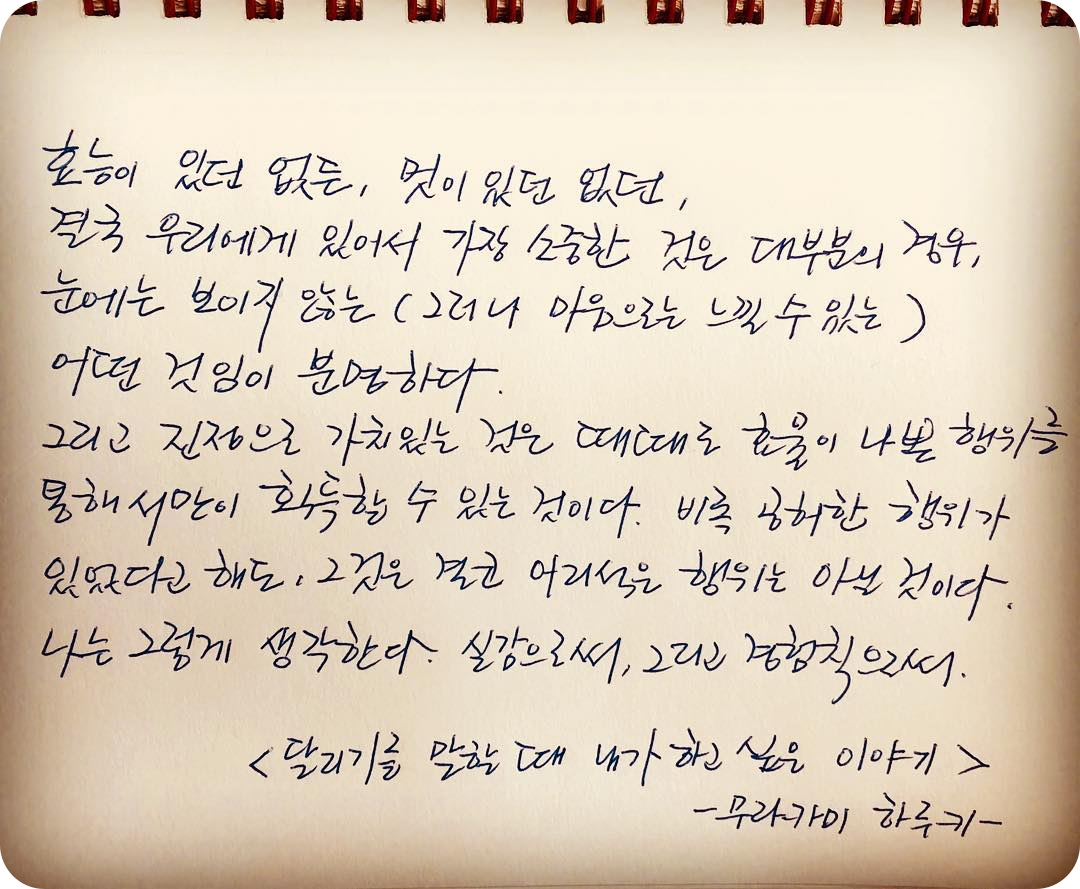 효능이 있던 없든, 멋이 있던 없던,
결국 우리에게 있어서 가장 소중한 것은 대부분의 경우,
눈에는 보이지 않는 (그러나 마음으로는 느낄 수 있는)
어떤 것임이 분명하다.
그리고 진정으로 가치있는 것은 때때로 효율이 나쁜 행위를
통해서만이 획득할 수 있는 것이다. 비록 공허한 행위가
있었다고 해도, 그것은 결코 어리석은 행위는 아닐 것이다.
나는 그렇게 생각한다. 실감으로써, 그리고 경험칙으로써.
<달리기를 말할 때 내가 하고 싶은 이야기>
-무라카미 하루키-